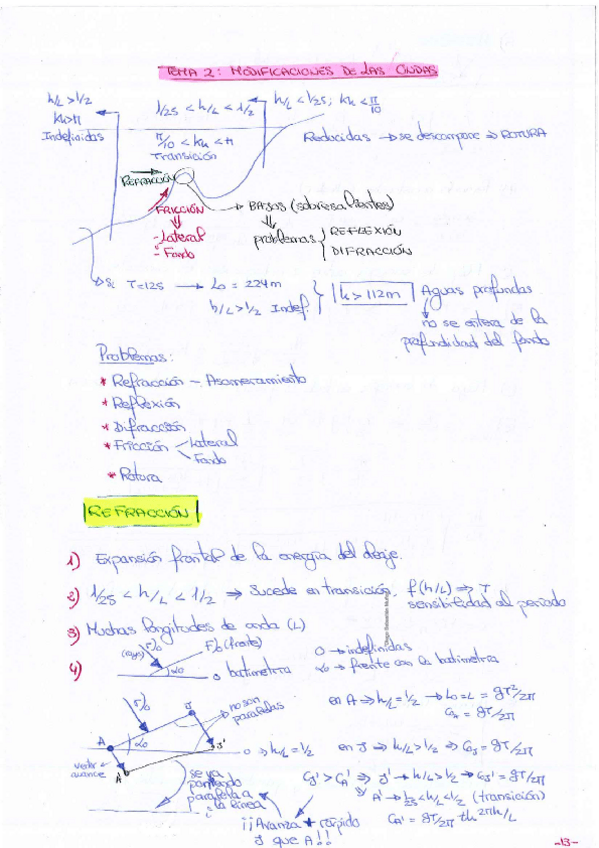 TEMA 2: MODIFICACIONES DE LAS ONDAS
h/L > 1/2
Kh > π
Indefinidas
1/25 < h/L < 1/2
π/10 < Kh < π
Transición
h/L < 1/25; Kh < π/10
Reducidas → se descompone ⇒ ROTURA
REFRACCIÓN
FRICCIÓN
- Lateral
- Fondo
BAJOS (sobresalientes)
problemas { REFLEXIÓN
DIFRACCIÓN
Si T=12s → Lo = 224m
h/L > 1/2 Indef. } h > 112m Aguas profundas
no se entera de la
profundidad del fondo
Problemas:
* Refracción - Asomeramiento
* Reflexión
* Difracción
* Fricción - Lateral
Fondo
* Rotura
REFRACCIÓN
1) Expansión frontal de la energía del oleaje.
2) 1/25 < h/L < 1/2 ⇒ Sucede en transición, f(h/L) ⇒ T
sensibilidad al período
3) Muchas longitudes de onda (L)
4) (rayo) F/o (frente)
αo
o batimetría
o → indefinidas
αo → frente con la batimetría
no son
paralelas
A J αo
A' J'
o ⇒ h/L = 1/2
vector
avance
se va
poniendo
paralela a
la línea
en A → h/L = 1/2 → Lo = L = gT²/2π
en J ⇒ h/L > 1/2 ⇒ CJ = gT/2π
CJ' > CA' ⇒ J' → h/L > 1/2 → CJ' = gT/2π
A' → 1/25 < h/L < 1/2 (transición)
CA' = gT/2π th 2πh/L
¡¡Avanza + rápido
J que A!!
-13-